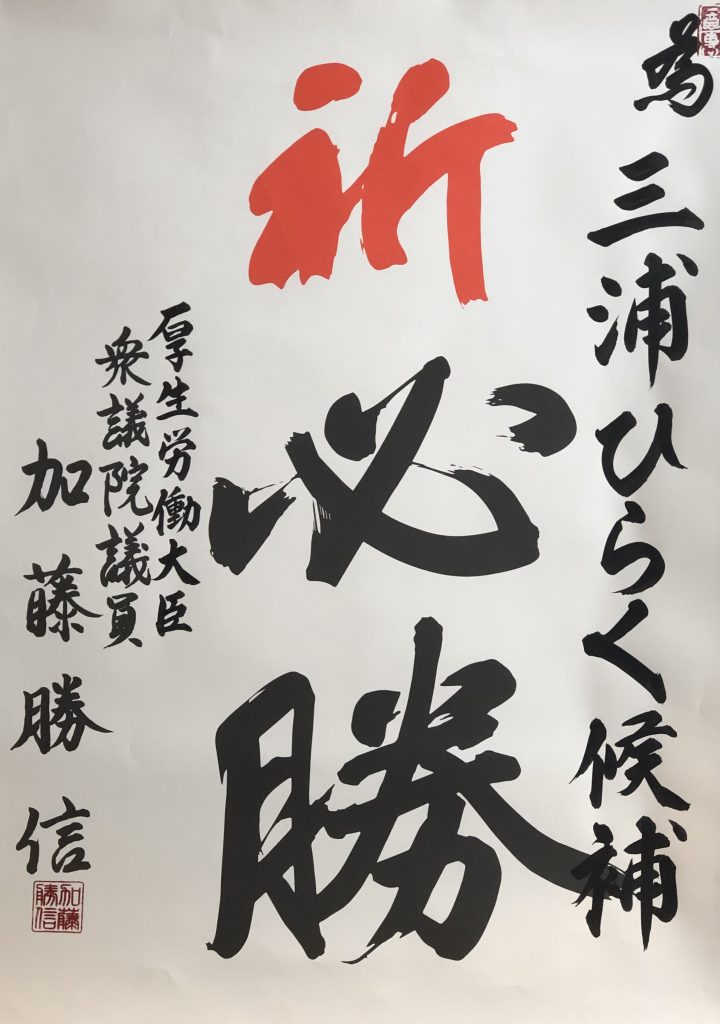 為 三浦ひらく候補
祈必勝
厚生労働大臣
衆議院議員
加藤勝信
加藤
勝信